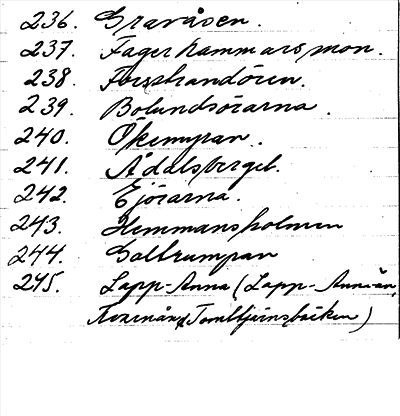 236. Gravåsen.
237. Fagerhammarsmon.
238. Forsstrandören.
239. Bolundsörarna.
240. Ökemyran.
241. Ådalsberget.
242. Ejörarna.
243. Hemmansholmen
244. Galtrumpan
245. Lapp-Anna (Lapp-Annaån,
Tomttjärnsbäcken)